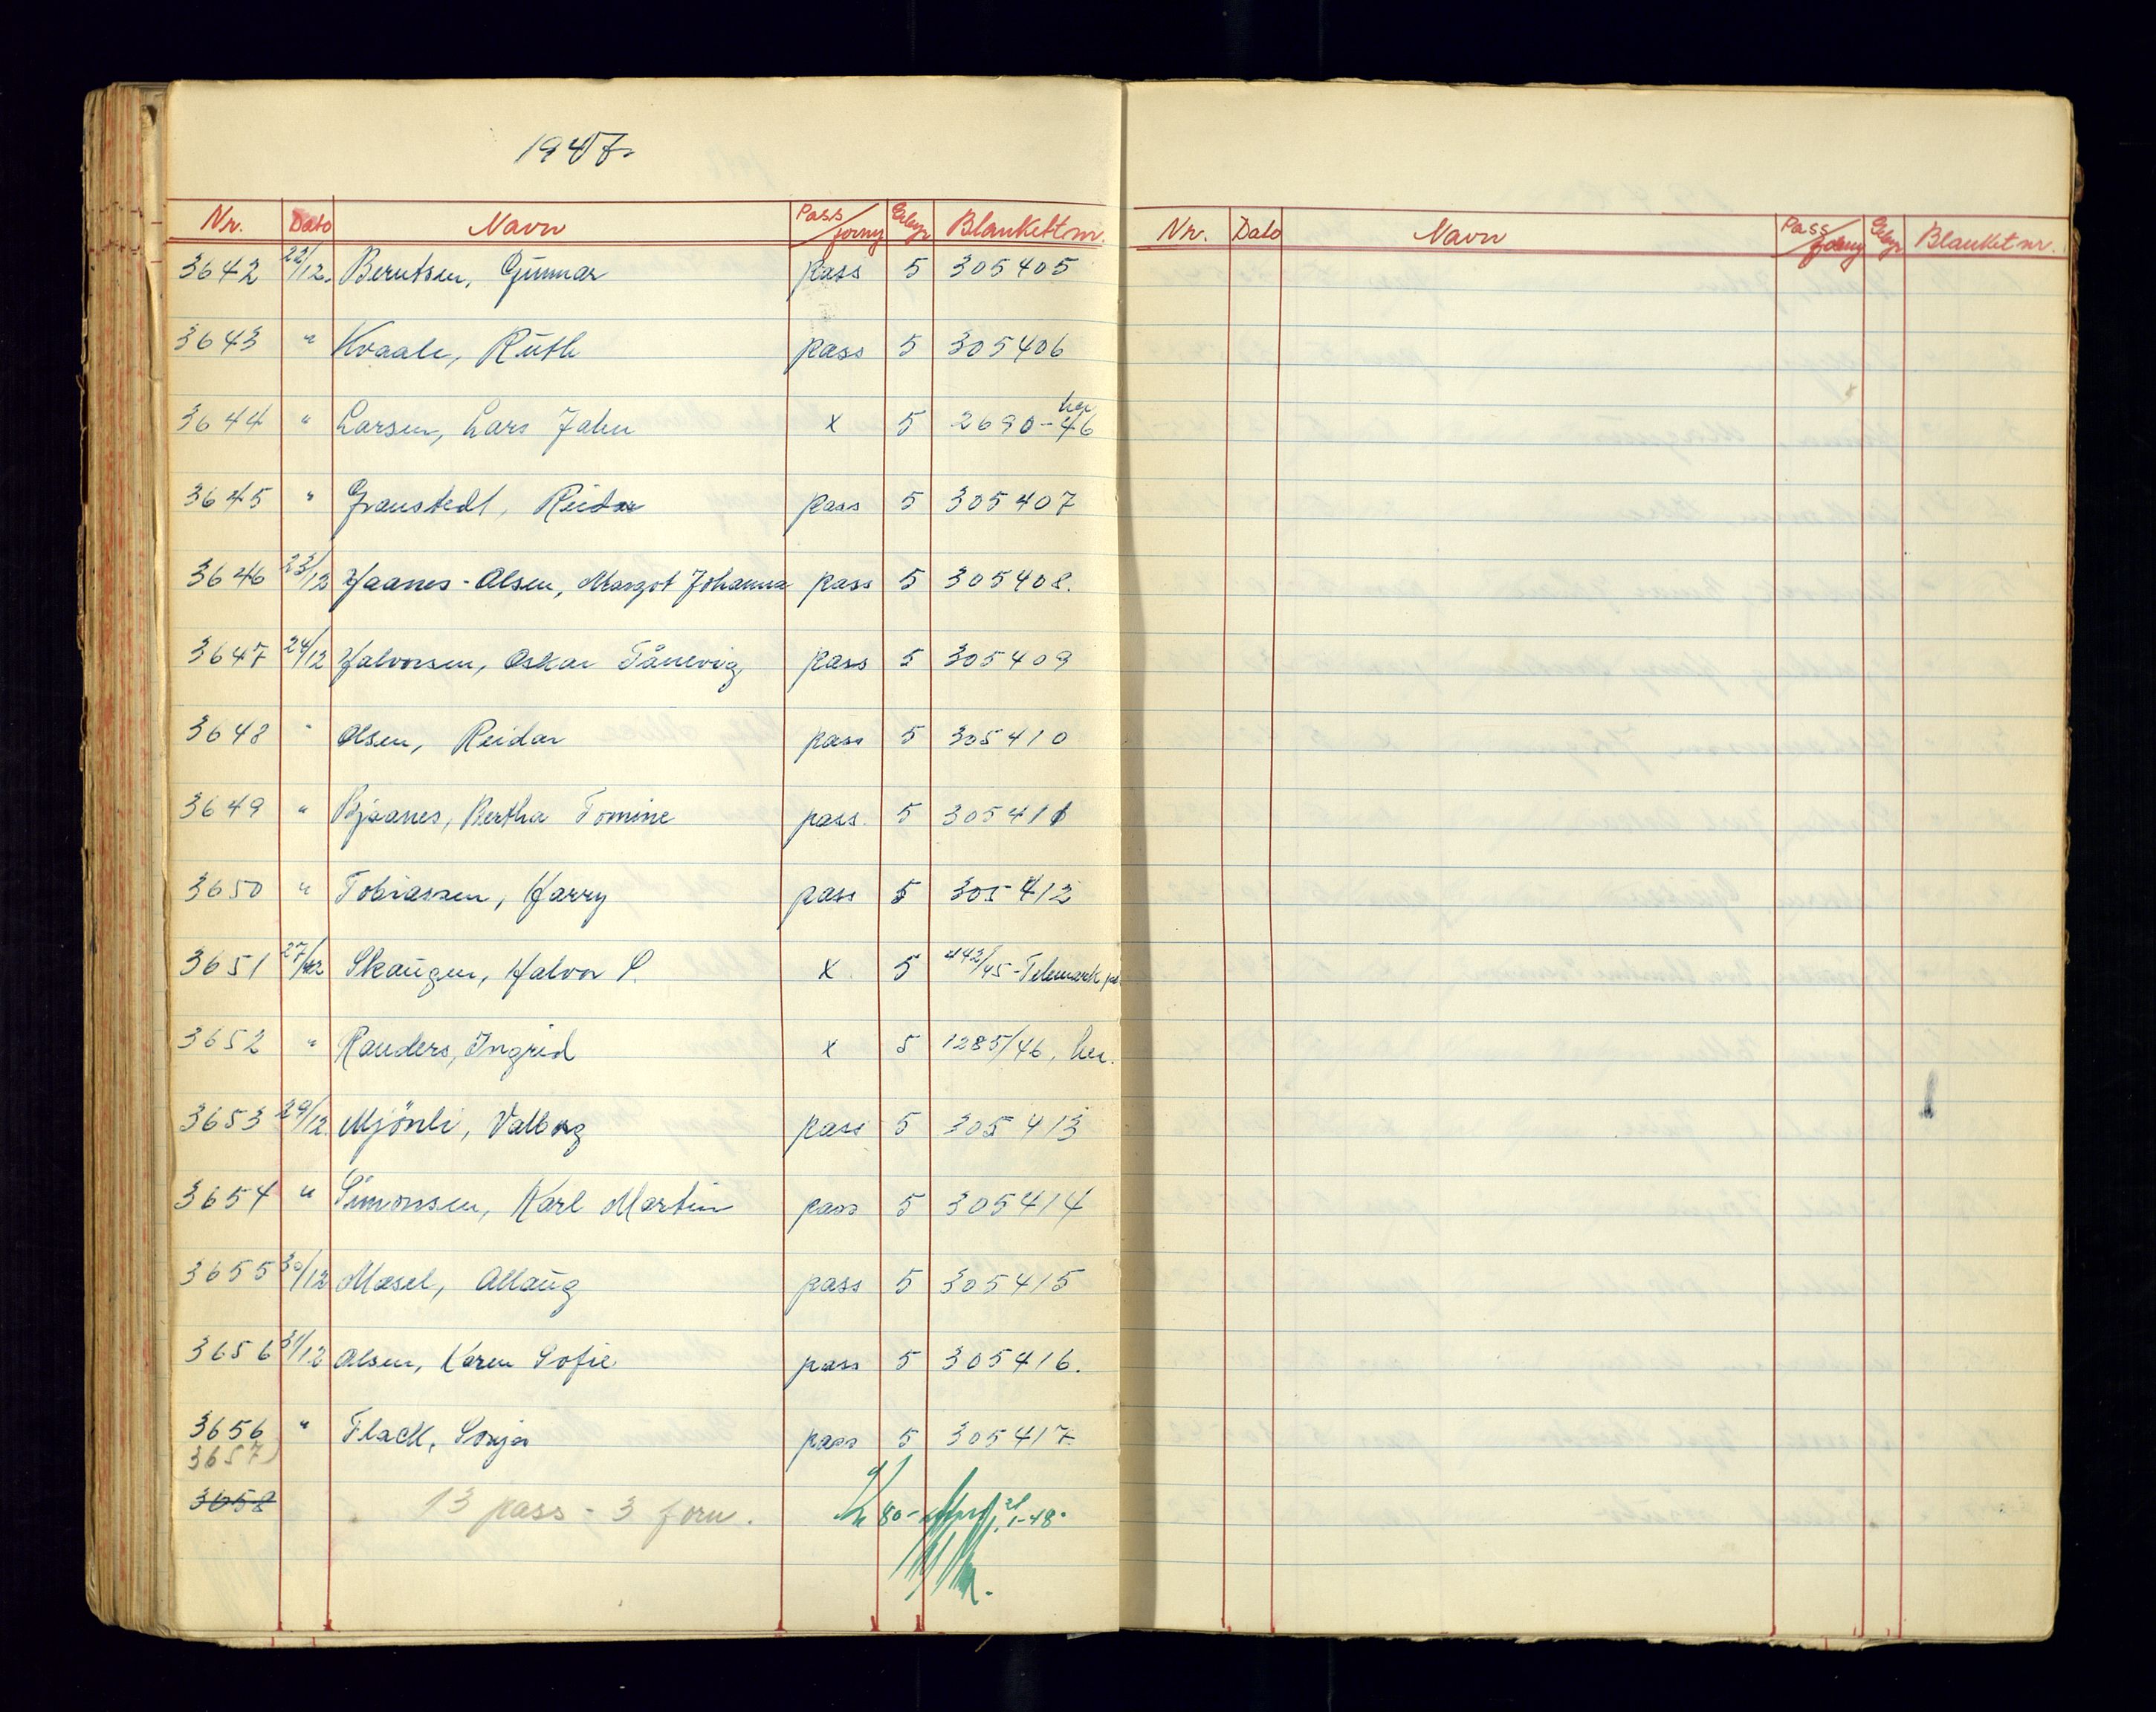 1947.
Nr. Dato Navn Pass/forny Gebyr Blankettnr.
3642 22/12. Berntsen, Gunnar pass 5 305405
3643 " Kvaale, Ruth pass 5 305406
3644 " Larsen, Lars John x 5 2690-46 her
3645 " Granstedt, Reidar pass 5 305407
3646 23/12 Haanes-Olsen, Margot Johanna pass 5 305408.
3647 24/12 Halvorsen, Oskar Tånevig pass 5 305409
3648 " Olsen, Reidar pass 5 305410
3649 " Bjaanes, Bertha Tomine pass. 5 305411
3650 " Tobiassen, Harry pass 5 305412
3651 27/12 Skaugen, Halvor S. x 5 442/45-Telemark
3652 " Randers, Ingrid x 5 1285/46, her.
3653 29/12. Mjönli, Valborg pass 5 305413
3654 " Simonsen, Karl Martin pass 5 305414
3655 30/12 Mosel, Allaug pass 5 305415
3656 31/12 Olsen, Karen Sofie pass 5 305416.
3656 " Flack, Sonja pass 5 305417.
3657
3658 13 pass - 3 forn. kr 80- 2/1-48.
Nr. Dato Navn Pass/forny Gebyr Blankettnr.